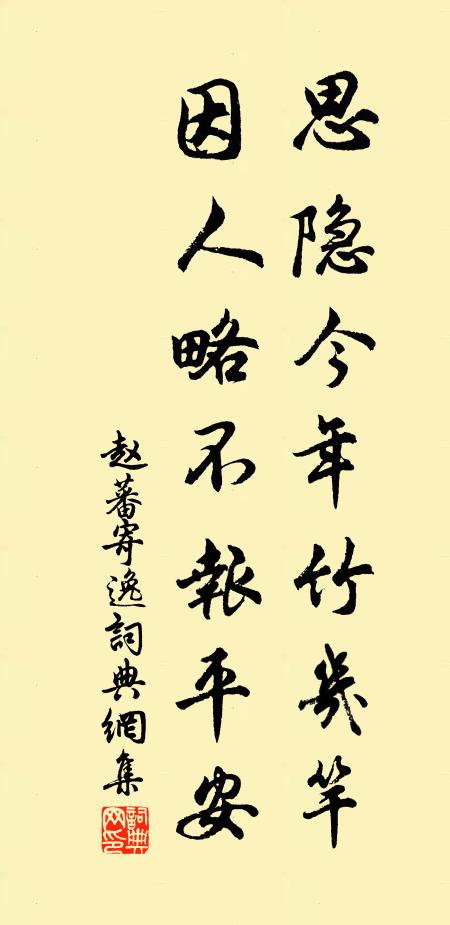 思隐今年竹幾竿
因人略不報平安
赵蕃寄逸詞典網集
詞典网印